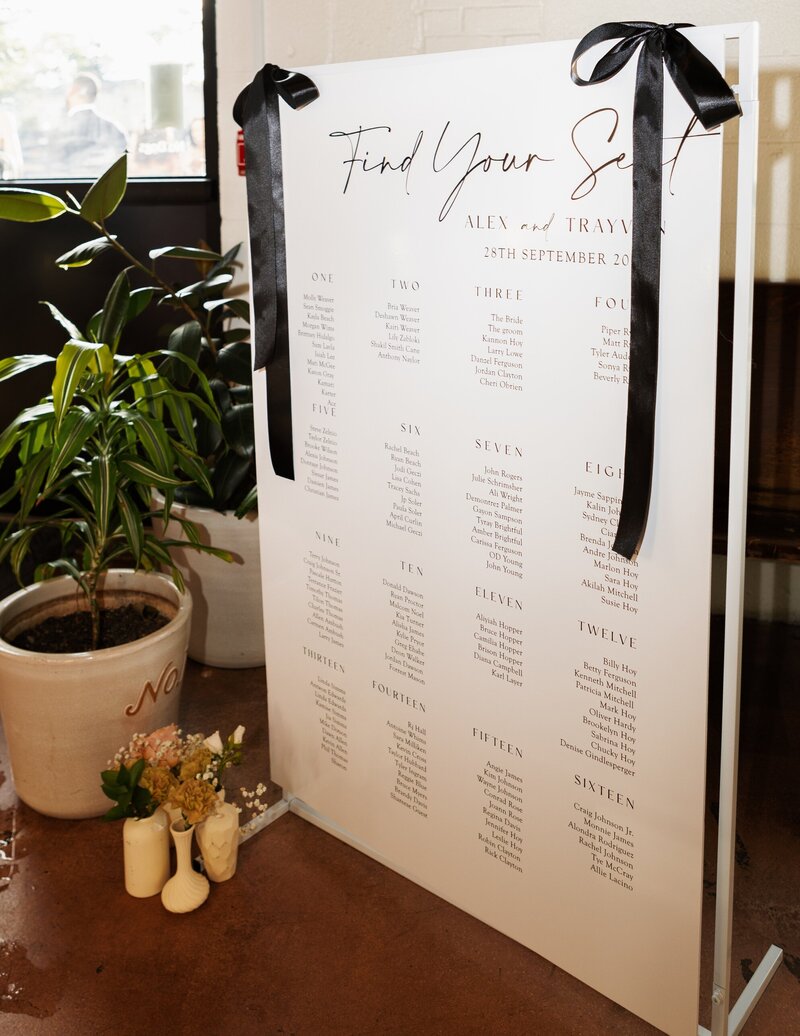 Find Your Seat
ALEX and TRAYVON
28TH SEPTEMBER
ONE
Molly Weaver
Sean Smuggie
Kayla Beach
Morgan Wims
Brennan Hidalgo
Sam Layla
Jaiah Lee
Matt McGee
Karon Gray
Kamari
Karter
Ace
TWO
Bria Weaver
Deshawn Weaver
Kairi Weaver
Lily Zabloki
Shakil Smith Cane
Anthony Naylor
THREE
The Bride
The groom
Kannon Hoy
Larry Lowe
Danzel Ferguson
Jordan Clayton
Cheri Obrien
FOU
Piper R
Matt R
Tyler Aud
Sonya R
Beverly R
FIVE
Steve Zeleno
Taylor Zeleno
Brooke Wilson
Alexis Johnson
Dontate Johnson
Simar James
Damien James
Christian James
SIX
Rachel Beach
Ryan Beach
Jodi Geczi
Lisa Cohen
Tracey Sachs
Jp Soler
Paula Soler
April Curlin
Michael Geczi
SEVEN
John Rogers
Julie Schrimsher
Ali Wright
Demontrez Palmer
Gayon Sampson
Tyray Brightful
Amber Brightful
Carissa Ferguson
OD Young
John Young
EIGH
Jayme Sappir
Kalin Joh
Sydney C
Cia
Brenda J
Andre Johns
Marlon Hoy
Sara Hoy
Akilah Mitchell
Susie Hoy
NINE
Terry Johnson
Craig Johnson Sr.
Pascale Humm
Terrance Frazier
Timothy Thomas
Tilon Thomas
Charlie Thomas
Allen Ambush
Carmen Ambush
Larry James
TEN
Donald Dawson
Ryan Proctor
Malcom Noel
Kia Turner
Alisha James
Kylie Pryor
Greg Ebabe
Deon Walker
Jordan Dawson
Forrest Mason
ELEVEN
Aliyiah Hopper
Bruce Hopper
Camilia Hopper
Brison Hopper
Diana Campbell
Karl Layer
TWELVE
Billy Hoy
Betty Ferguson
Kenneth Mitchell
Patricia Mitchell
Mark Hoy
Oliver Hardy
Brookelyn Hoy
Sabrina Hoy
Chucky Hoy
Denise Gindlesperger
THIRTEEN
Linda Simms
Antwon Edwards
Linda Edwards
Karmine Simms
Joe Simms
Mike Dixson
Dawn Allen
Kevin Allen
Phil Thomas
Sharon
FOURTEEN
Rj Hall
Antoine Whims
Sara Milliken
Kevin Cross
Taylor Hubbard
Tyler Ingram
Reggie Blue
Bruce Myers
Brandy Davis
Shantese Guest
FIFTEEN
Angie James
Kim Johnson
Wayne Johnson
Conrad Rose
Joann Rose
Regina Davis
Jennifer Hoy
Leslie Hoy
Robin Clayton
Rick Clayton
SIXTEEN
Craig Johnson Jr.
Monnie James
Alondra Rodriguez
Rachel Johnson
Tye McCray
Allie Lacino
No.